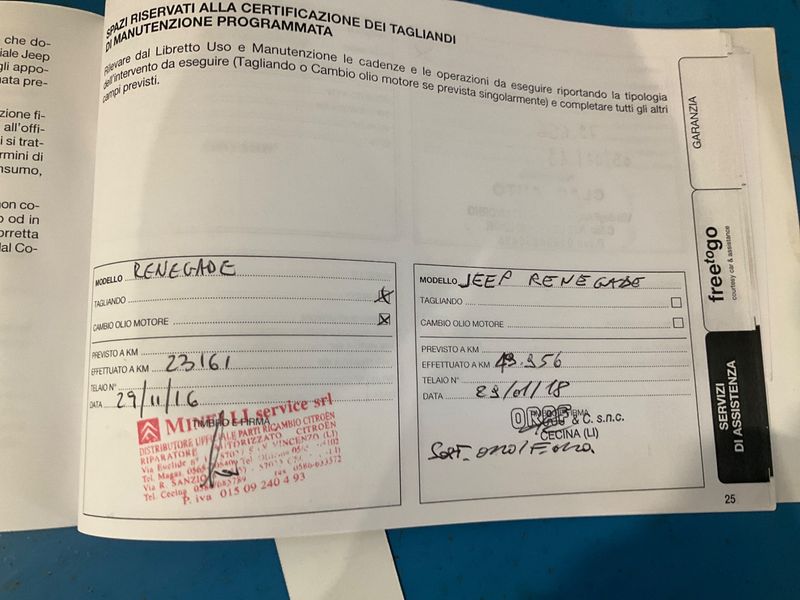 che do-
iale Jeep
gli appo-
nata pre-
zione fi-
all'offi-
i si trat-
rmini di
nsumo,
non co-
o od in
orretta
dal Co-
SPAZI RISERVATI ALLA CERTIFICAZIONE DEI TAGLIANDI
DI MANUTENZIONE PROGRAMMATA
Rilevare dal Libretto Uso e Manutenzione le cadenze e le operazioni da eseguire riportando la tipologia
dell'intervento da eseguire (Tagliando o Cambio olio motore se prevista singolarmente) e completare tutti gli altri
campi previsti.
MODELLO RENEGADE
TAGLIANDO
CAMBIO OLIO MOTORE
PREVISTO A KM
EFFETTUATO A KM 23161
TELAIO N°
DATA 29/11/16
TIMBRO E FIRMA
MINELLI service srl
DISTRIBUTORE UFFICIALE PARTI RICAMBIO CITROËN
RIPARATORE AUTORIZZATO CITROËN
Via Euclide 57027 S. VINCENZO (LI)
Tel. Magaz 0565
Via R. SANZIO
Tel. Cecina 0586/685789 fax 0586-633572
P. iva 015 09 240 4 93
MODELLO JEEP RENEGADE
TAGLIANDO
CAMBIO OLIO MOTORE
PREVISTO A KM
EFFETTUATO A KM 43.956
TELAIO N°
DATA 23/01/18
& C. s.n.c.
CECINA (LI)
GARANZIA
freetogo
courtesy car & assistance
SERVIZI
DI ASSISTENZA
25